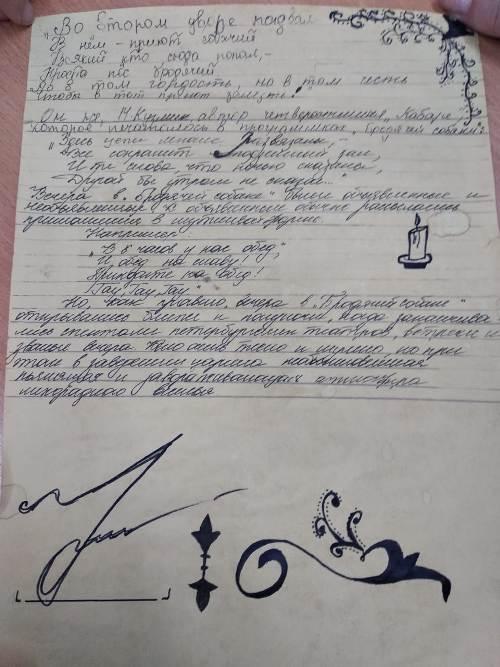 "Во втором дворе подвал
В нём - приют собачий
Всякий кто сюда попал, -
Просто пёс бродячий
Но в том гордость, но в том честь
Чтобы в тот приют залезть!"
Он же, М. Кузмин автор четверостишия "Кабаре",
которое печаталось в программках "Бродячей собаки":
"Здесь цепи многие развязаны, -
Все сохранит подземный зал,
И те слова, что ночью сказаны,
Другой бы утром не сказал..."
Вечера в "Бродячей собаке" были объявленные и
необъявленные. На объявленные обычно рассылались
Например
"В 5 часов у нас обед,
И обед на славу!
Приходите на обед!
Гау, Гау, Гау"
Но, как правило, вечера в "Бродячей собаке"
открывались ближе к полуночи, когда заканчива-
лись спектакли петербургских театров,
званые вечера. Было очень тесно и но при
этом в заведении царила необыкновенная
и завораживающая атмосфера